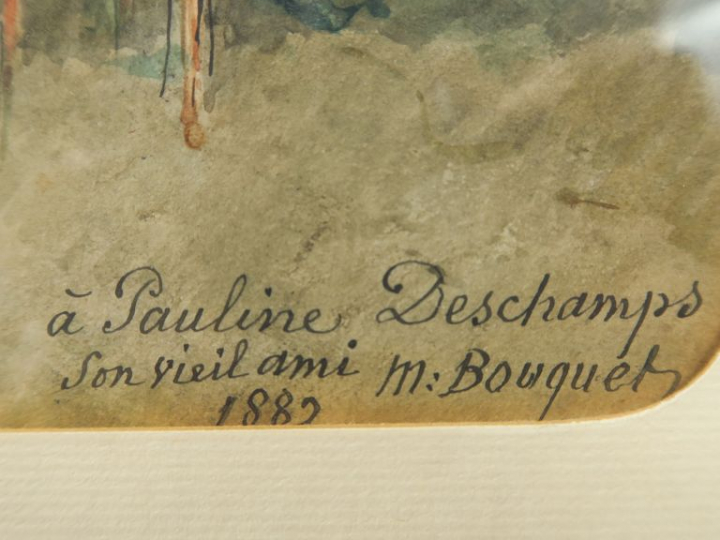 à Pauline Deschamps
son vieil ami M: Bouquet
1882